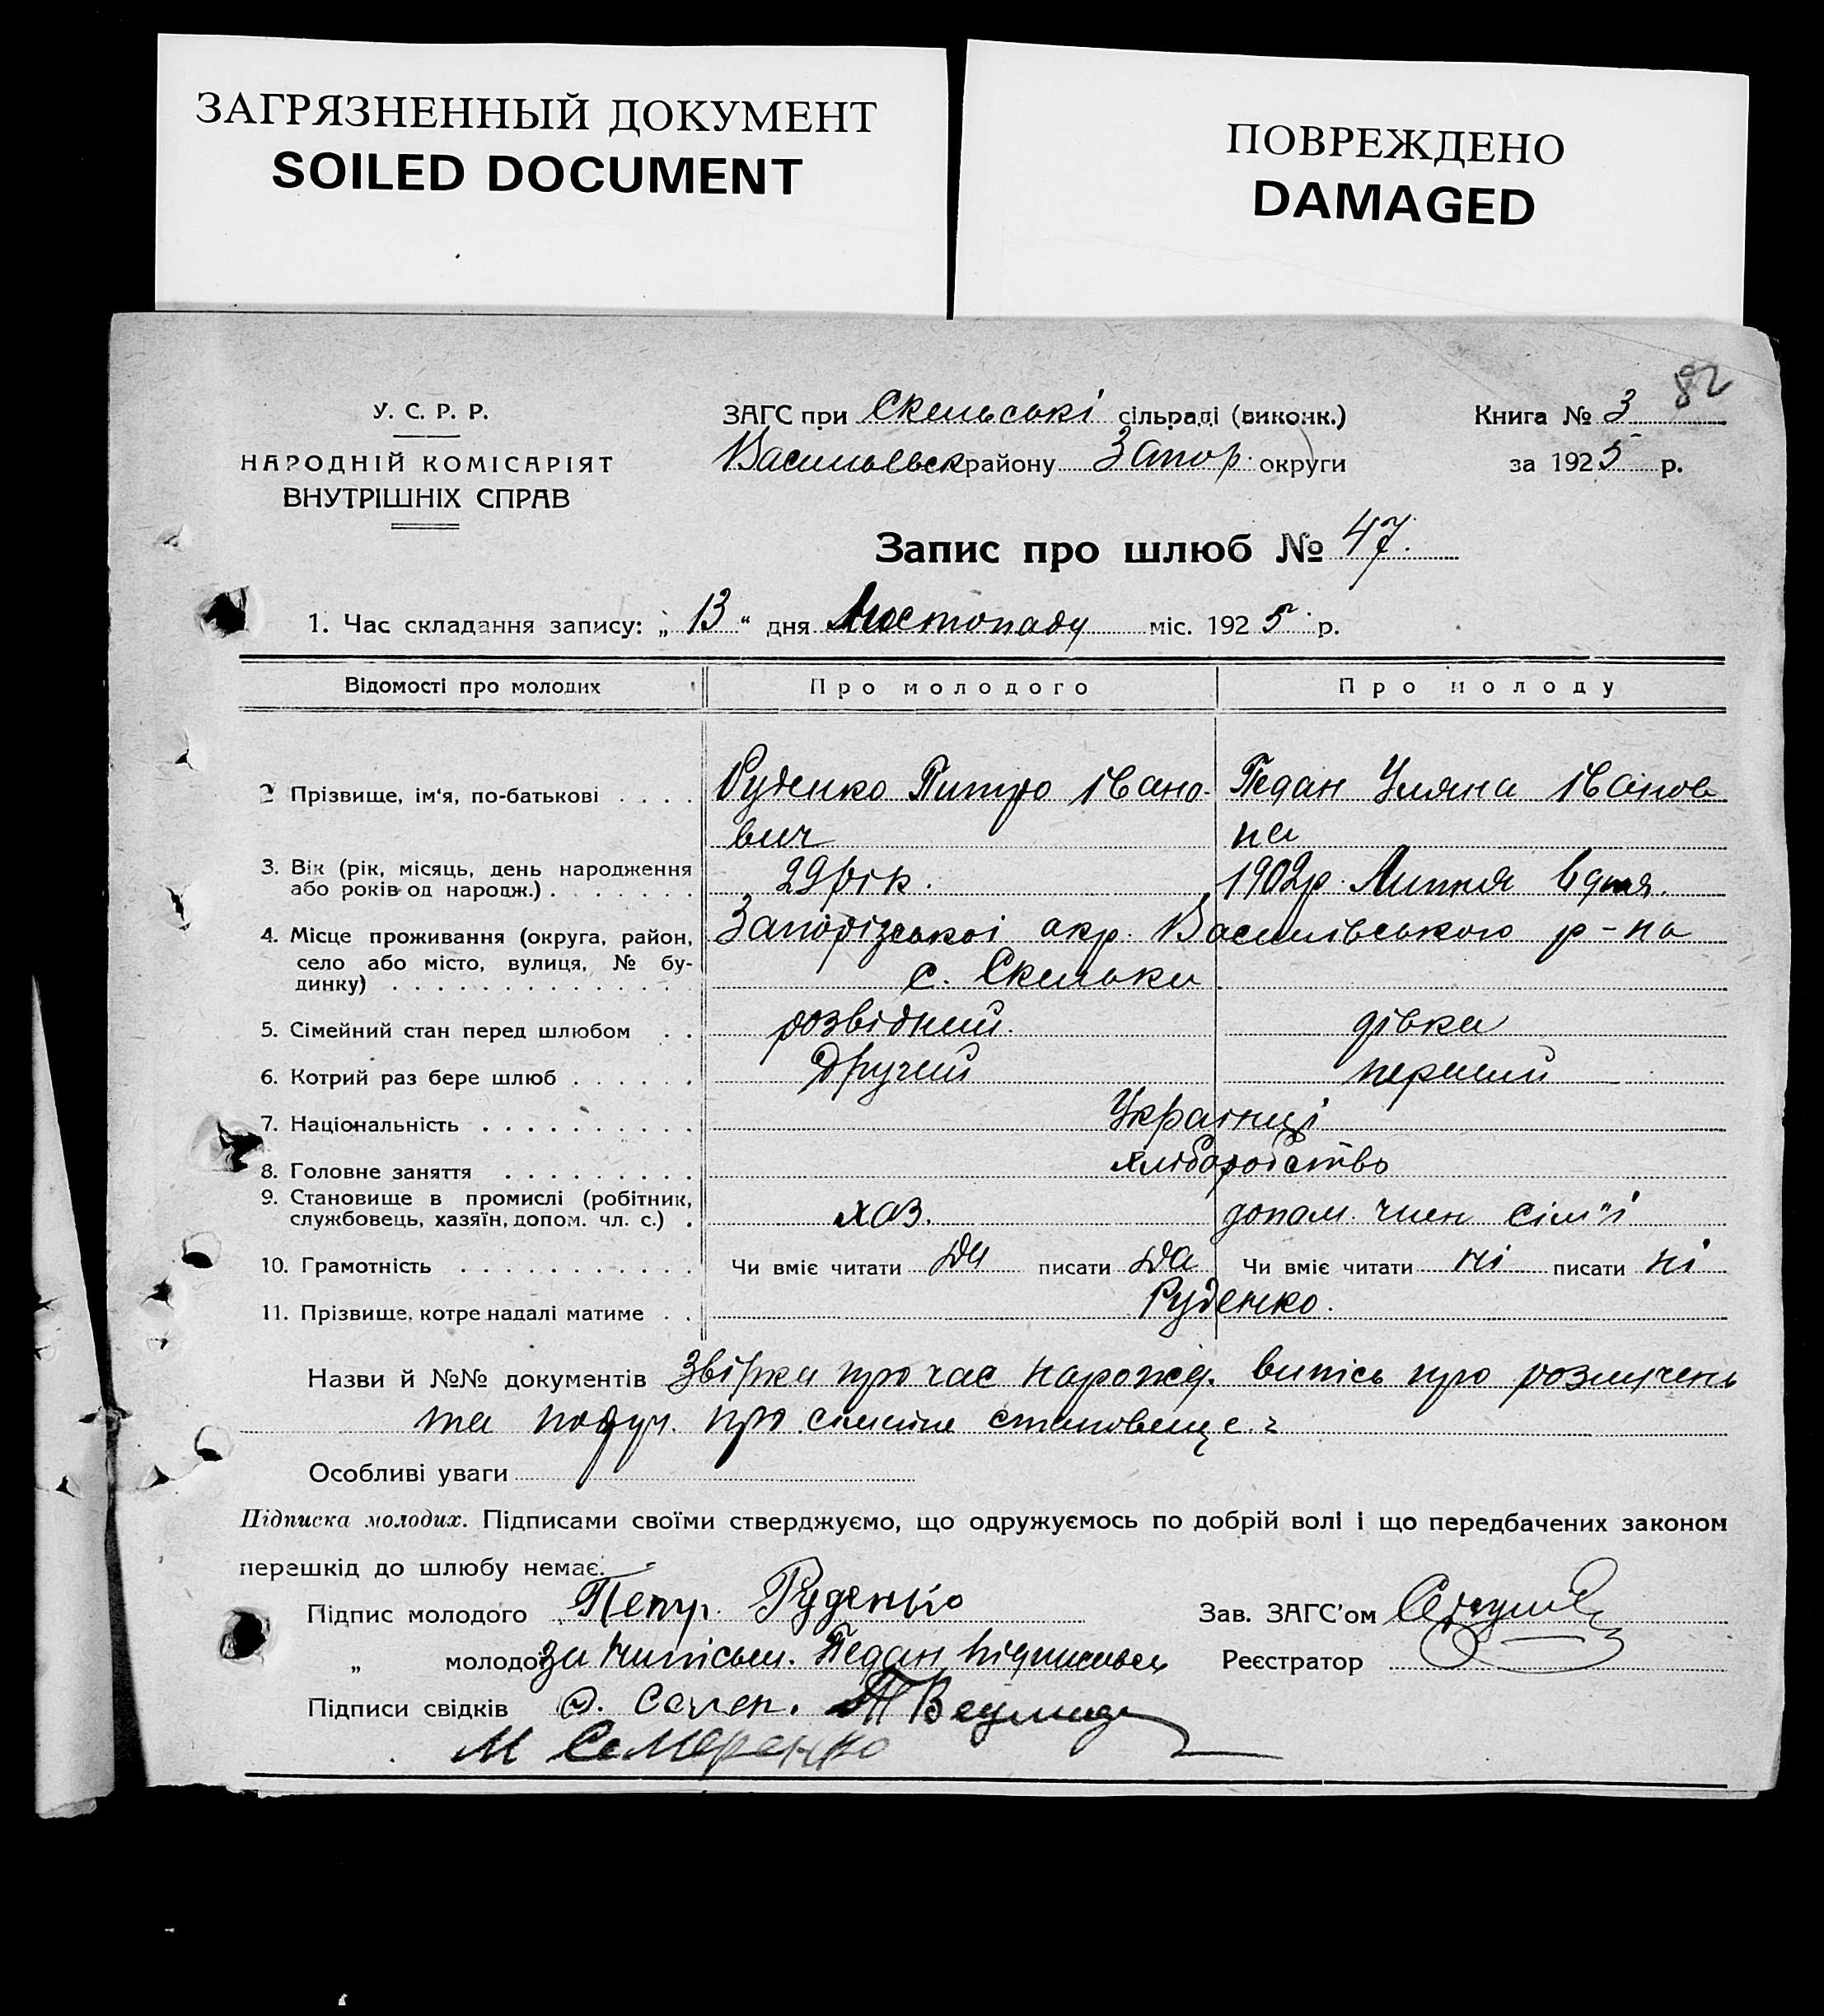 ЗАГРЯЗНЕННЫЙ ДОКУМЕНТ
SOILED DOCUMENT
ПОВРЕЖДЕНО
DAMAGED
82
У. С. Р. Р.
НАРОДНІЙ КОМІСАРІЯТ
ВНУТРІШНІХ СПРАВ
ЗАГС при Скельські сільраді (виконк.)
Васильевск району Запор. округи
Книга № 3
за 1925 р.
Запис про шлюб № 47.
1. Час складання запису: „13“ дня Листопаду міс. 1925 р.
Відомості про молодих Про молодого Про молоду
2 Прізвище, ім‘я, по-батькові . . . . Руденко Питро Івано- Педан Уляна Іванов
вич на
3. Вік (рік, місяць, день народження 29 рік. 1902р. Липня 6 дня.
або років од народж.) . . . . . . .
4. Місце проживання (округа, район, Запорізської окр. Василівського р-на
село або місто, вулиця, № бу- с. Скельки
динку) . . . . . . . . . . . . .
5. Сімейний стан перед шлюбом . . розвідний. дівка
6. Котрий раз бере шлюб . . . . . . Другий перший
7. Національність . . . . . . . . . . Українці
8. Головне заняття . . . . . . . . . хліборобство
9. Становище в промислі (робітник,
службовець, хазяїн, допом. чл. с.) . хаз. допом. член сім"ї
10. Грамотність . . . . . . . . . . . Чи вміє читати да писати да Чи вміє читати ні писати ні
11. Прізвище, котре надалі матиме . . Руденко.
Назви й №№ документів Звірка про час нарожд. випісь про розлучень
та про становеще
Особливі уваги
Підписка молодих. Підписами своїми стверджуємо, що одружуємось по добрій волі і що передбачених законом
перешкід до шлюбу немає.
Підпис молодого Петр. Руденко Зав. ЗАГС’ом
„ молодої за Педан Реєстратор
Підписи свідків
М Семеренко